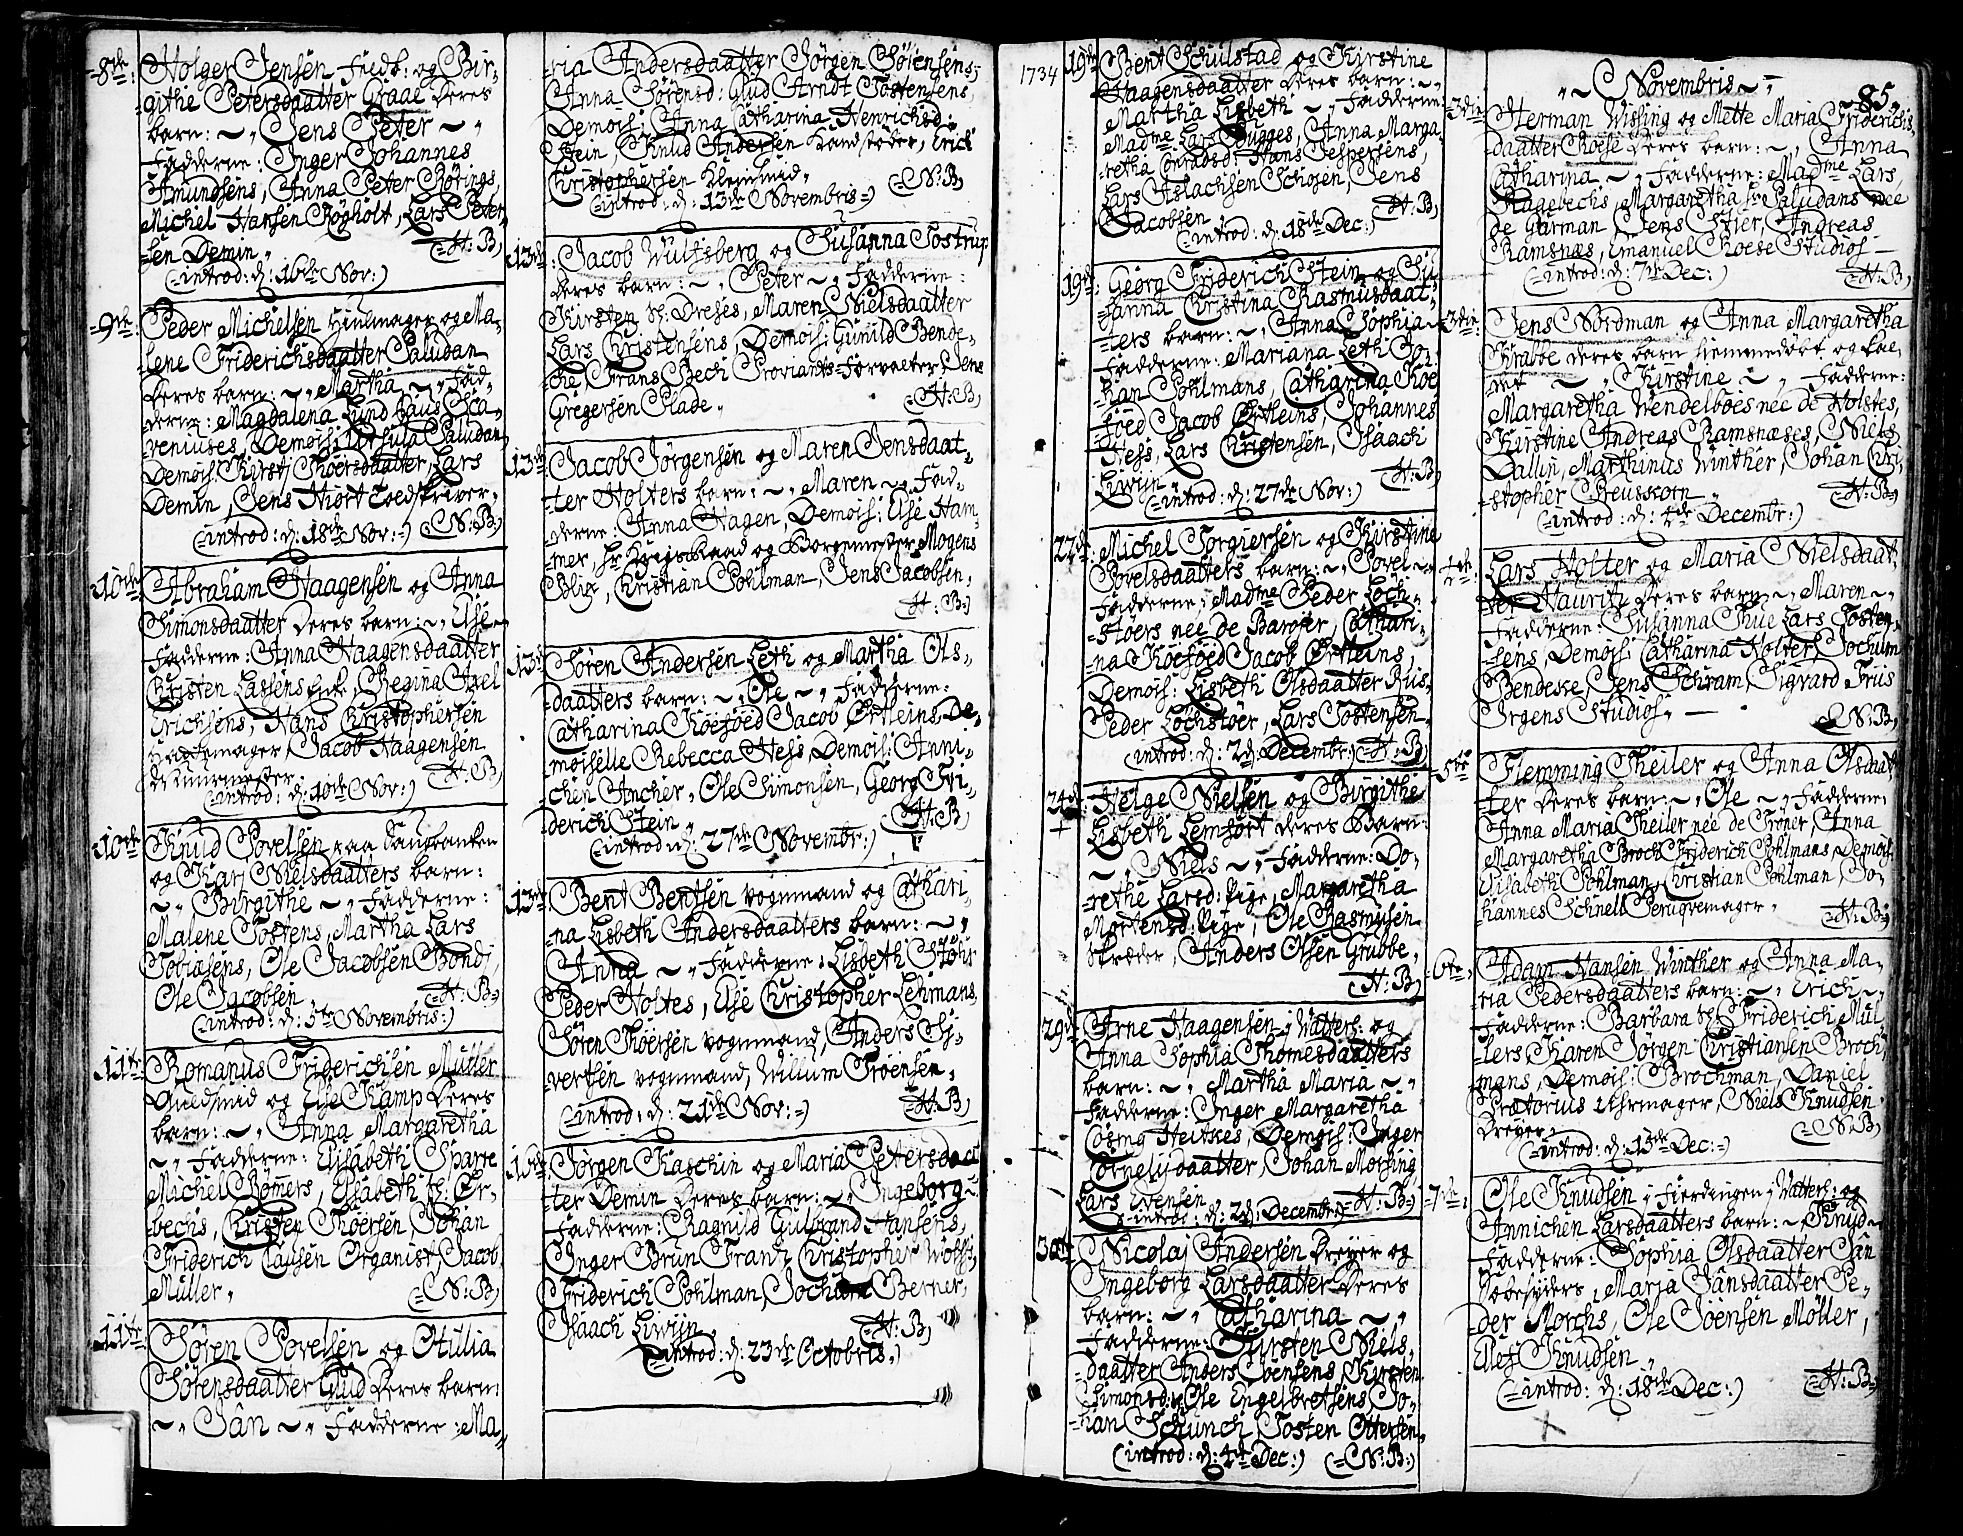 8de Holger Jensen Fredb: og Bir-
githe Petersdaatter Graae deres
barn: ~ Jens Peter ~
Fadderne: Inger Johannes
Amundsens, Anna Peter Börings,
Michel Hansen Bögholt, Lars Peter-
sen Demin. =H:B)
(introd: d: 16de Nov:)
9de Peder Michelsen Hiulmager og Ma-
lene Friderichsdaatter Paludan
deres barn: ~ Martha ~ Fad-
derne: Magdalena Lund Claus Sca-
veniuses, Demois: Ursula Paludan
Demois: Kirst: Thoersdaatter, Lars
Demin, Jens Hiort Toedskriver.
(introd: d: 18de Nov:) =N:B)
10de Abraham Haagensen og Anna
Simonsdaatter deres barn: ~ Else ~
Fadderne: Anna Haagensdaatter
Kristen Lassens Enke, Regina Axel
Erichsens, Hans Christophersen
Hattemager, Jacob Haagensen
Muurmester. =H:B)
(introd: d: 10de Nov:)
10de Knud Povelsen paa Saugbanken
og Kari Nielsdaatters barn:
~ Birgithe ~ Fadderne:
Malene Tostens, Martha Lars
Tobiæsens, Ole Jacobsen Bonde,
Ole Jacobsen. =H:B)
(introd: d: 5te Novembris:)
11te Romanus Friderichsen Müller
Guldsmid og Else Kamp deres
barn: ~ Anna Margaretha
~ Fadderne: Elisabeth Sparre
Michel Römers, Elisabeth Er-
bechs, Christen Thoersen, Johan
Friderich Clausen Organist, Jacob
Müller. =N:B)
11te Sören Povelsen og Otulia
Sörensdaatter Glud deres barn:
~ Jân ~ Fadderne: Ma-
ria Andersdaatter Jörgen Sörensens,
Anna Sörensd: Glud Arndt Tostensens,
Demois: Anna Catharina Henrichsd:
Stein, Knud Andersen Handskeder, Erich
Christophersen Kleinsmid. =N:B)
(introd: d: 13de Novembris)
13de Jacob Wulfsberg og Susanna Tostrup
deres barn: ~ Peter ~ Fadderne:
Kirsten Sl: Dreses, Maren Nielsdaatter
Lars Christensens, Demois: Gunild Bende-
che, Frans Bech Proviants-Forvalter, Jens
Gregersen Plade. =H:B)
13de Jacob Jörgensen og Maren Jensdaat-
ter Holters barn: ~ Maren ~ Fad-
derne: Anna Hagen, Demois: Else Ham-
mer, Hr Krigs Raad og Borgemester Mogens
Blix, Christian Pohlman, Jens Jacobsen,
=H:B)
13de Sören Andersen Leth og Martha Ols-
daatters barn: ~ Ole ~ Fadderne:
Catharina Koefoed Jacob Örtleins, De-
moiselle Rebecca Hess, Demois: Anni-
chen Ancher, Ole Simonsen, Georg Fri-
derich Stein =H:B)
(introd: d: 27de Novembr:)
13de Bent Bentsen vognmand og Cathari-
na Lisbeth Andersdaatters barn: ~
Anna ~ Fadderne: Lisbeth Stöhr
Peder Holtes, Else Christopher Lehmans,
Sören Thoersen vognmand, Anders Sy-
vertsen vognmand, Willum Troensen,
(introd: d: 21de Nov:) =H:B)
16de Jörgen Kaschin og Maria Petersdaat-
ter Demin deres barn: ~ Ingeborg ~
Fadderne: Ragnild Gulbrand Hansens,
Inger Brun Frantz Christopher Wolfs,
Friderich Pohlman, Jochum Berner,
Isaach Liwin. =H:B)
(introd: d: 23de Octobris.)
1734
19de Bent Schulstad og Kirstine
Haagensdaatter deres barn: ~
Martha Lisbeth ~ Fadderne:
Madme Lars Bugges, Anna Marga-
retha Conradsd: Hans Jespersens,
Lars Aslachsen Schoien, Jens
Jacobsen =H:B)
(introd: d: 18de Dec:)
19de Georg Friderich Stein og Su-
sanna Christina Rasmusdaat-
ters barn: ~ Anna Sophia ~
Fadderne: Mariana Leth Jo-
han Pohlmans, Catharina Koe-
foed Jacob Örtleins, Johannes
Hess, Lars Christensen, Isaach
Liwin. =H:B)
(introd: d: 27de Nov:)
22de Michel Torgiersen og Kirstine
Povelsdaatters barn: ~ Povel ~
Fadderne: Madme Peder Loch-
stoers nee de Baroser, Cathari-
na Koefoed Jacob Örtleins,
Demois: Lisbeth Olsdaatter Ruis,
Peder Lochstöer, Lars Tostensen.
(introd: d: 2de Decembr:) =H:B)
24de Helge Nielsen og Birgithe
Lisbeth Lemfort deres Barn:
~ Niels ~ Fadderne: Do-
rethe Larsd: Pige, Margaretha
Mortensd: Pige, Ole Rasmusen
Skreder, Anders Olsen Grubbe.
=H:B)
29de Arne Haagensen j Watters: og
Anna Sophia Thomesdaatters
barn: ~ Martha Maria ~
Fadderne: Inger Margaretha
Cosmo Heitkes, Demois: Inger
Cornelysdaatter, Johan Morsing,
Lars Evensen =H:B)
(introd: d: 2de Decembr:)
30de Nicolaj Andersen Dreyer og
Ingeborg Larsdaatter deres
barn: ~ Catharina ~
Fadderne: Kirsten Niels-
daatter Anders Joensens, Kirsten
Simonsd: Ole Engelbretsens, Jo-
han Schunch, Tosten Ottersen.
(introd: d: 4de Dec:) =N:B)
~ Novembris ~ 85.
3die Herman Wissing og Mette Maria Friderichs-
daatter Roese deres barn: ~ Anna
Catharina ~ Fadderne: Madme Lars
Flagebechs, Margaretha Sl: Paludans nee
de Garman, Jens Stier, Andreas
Ramsnæs, Emanuel Roese Studios:
(introd: d: 7de Dec:) =H:B)
3die Jens Nordman og Anna Margaretha
Krabbe deres barn hiemmedöbt og Kal-
det ~ Kirstine ~ Fadderne:
Margaretha Wendelboes nee de Holstes,
Kirstine Andreas Ramsnæses, Niels
Dallin, Marthinus Winther, Johan Chri-
stopher Greuskorn =H:B)
(introd: d: 4de Decembr:)
4de Lars Holter og Maria Nielsdaat-
ter Hauritz deres barn ~ Maren ~
Fadderne: Susanna Thue Lars Tosten-
sens, Demois: Catharina Holter, Jochum
Bendeske, Jens Schram, Sigvard Friis
Irgens Studios. =N:B)
5te Flemming Theiler og Anna Olsdaat-
ter deres barn: ~ Ole ~ Fadderne:
Anna Maria Theiler nee de Troner, Anna
Margaretha Broch Friderich Pohlmans, Demois:
Elisabeth Pohlman, Christian Pohlman, Jo-
hannes Schnell Peruqvemager. =H:B)
6te Adam Hansen Winther og Anna Ma-
ria Pedersdaatters barn: ~ Erich ~
Fadderne: Barbara Sl: Friderich Mül-
lers, Karen Jörgen Christiansen Broch-
mans, Demois: Brochman, Daniel
Prætorius Uhrmager, Niels Knudsen
Dreyer. =N:B)
(introd: d: 13de Dec:)
7de Ole Knudsen j Fierdingen j Watters: og
Annichen Larsdaatters barn: ~ Knud ~
Fadderne: Sophia Olsdaatter Jân
Sebesyders, Maria Jânsdaatter Pe-
der Morchs, Ole Joensen Möller,
Ellef Knudsen
(introd: d: 18de Dec:) =H:B)